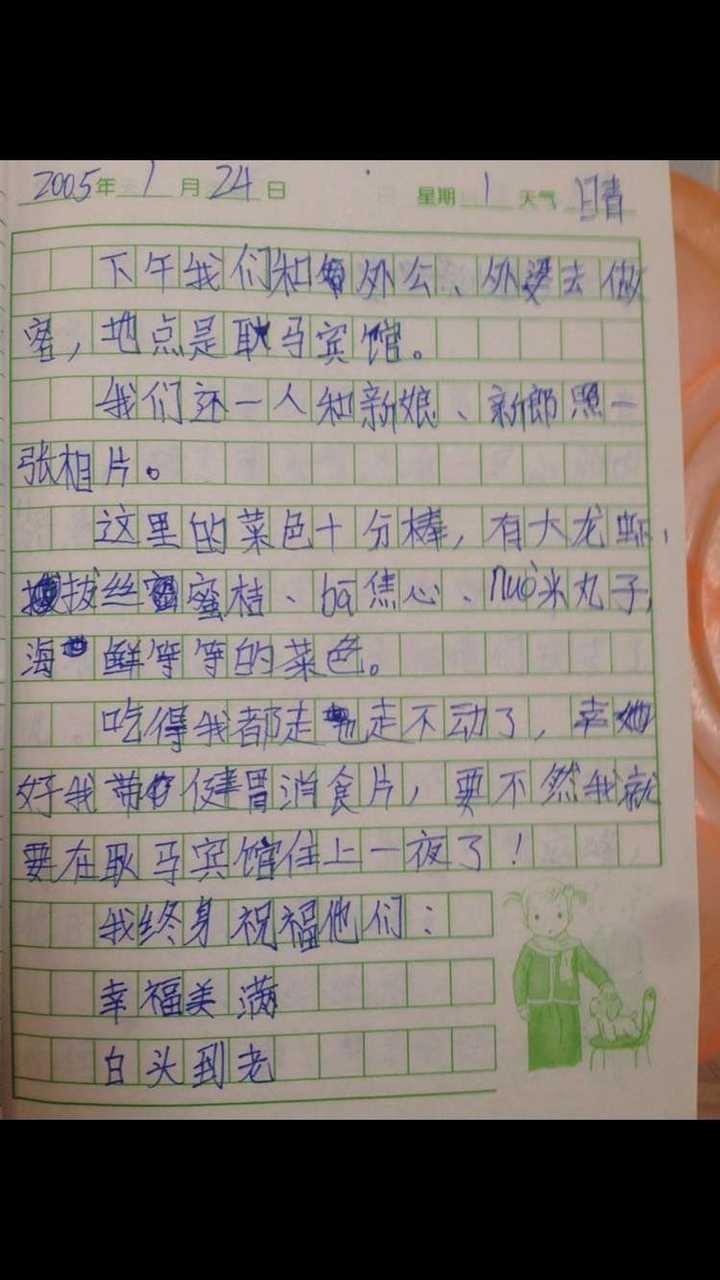 2005年1月24日 星期1 天气晴
下午我们和外公、外婆去做
客，地点是耿马宾馆。
我们还一人和新娘、新郎照一
张相片。
这里的菜色十分棒，有大龙虾，
拔丝蜜桔、bā焦心、nuò米丸子，
海鲜等等的菜色。
吃得我都走也走不动了，幸
好我带健胃消食片，要不然我就
要在耿马宾馆住上一夜了！
我终身祝福他们：
幸福美满
白头到老